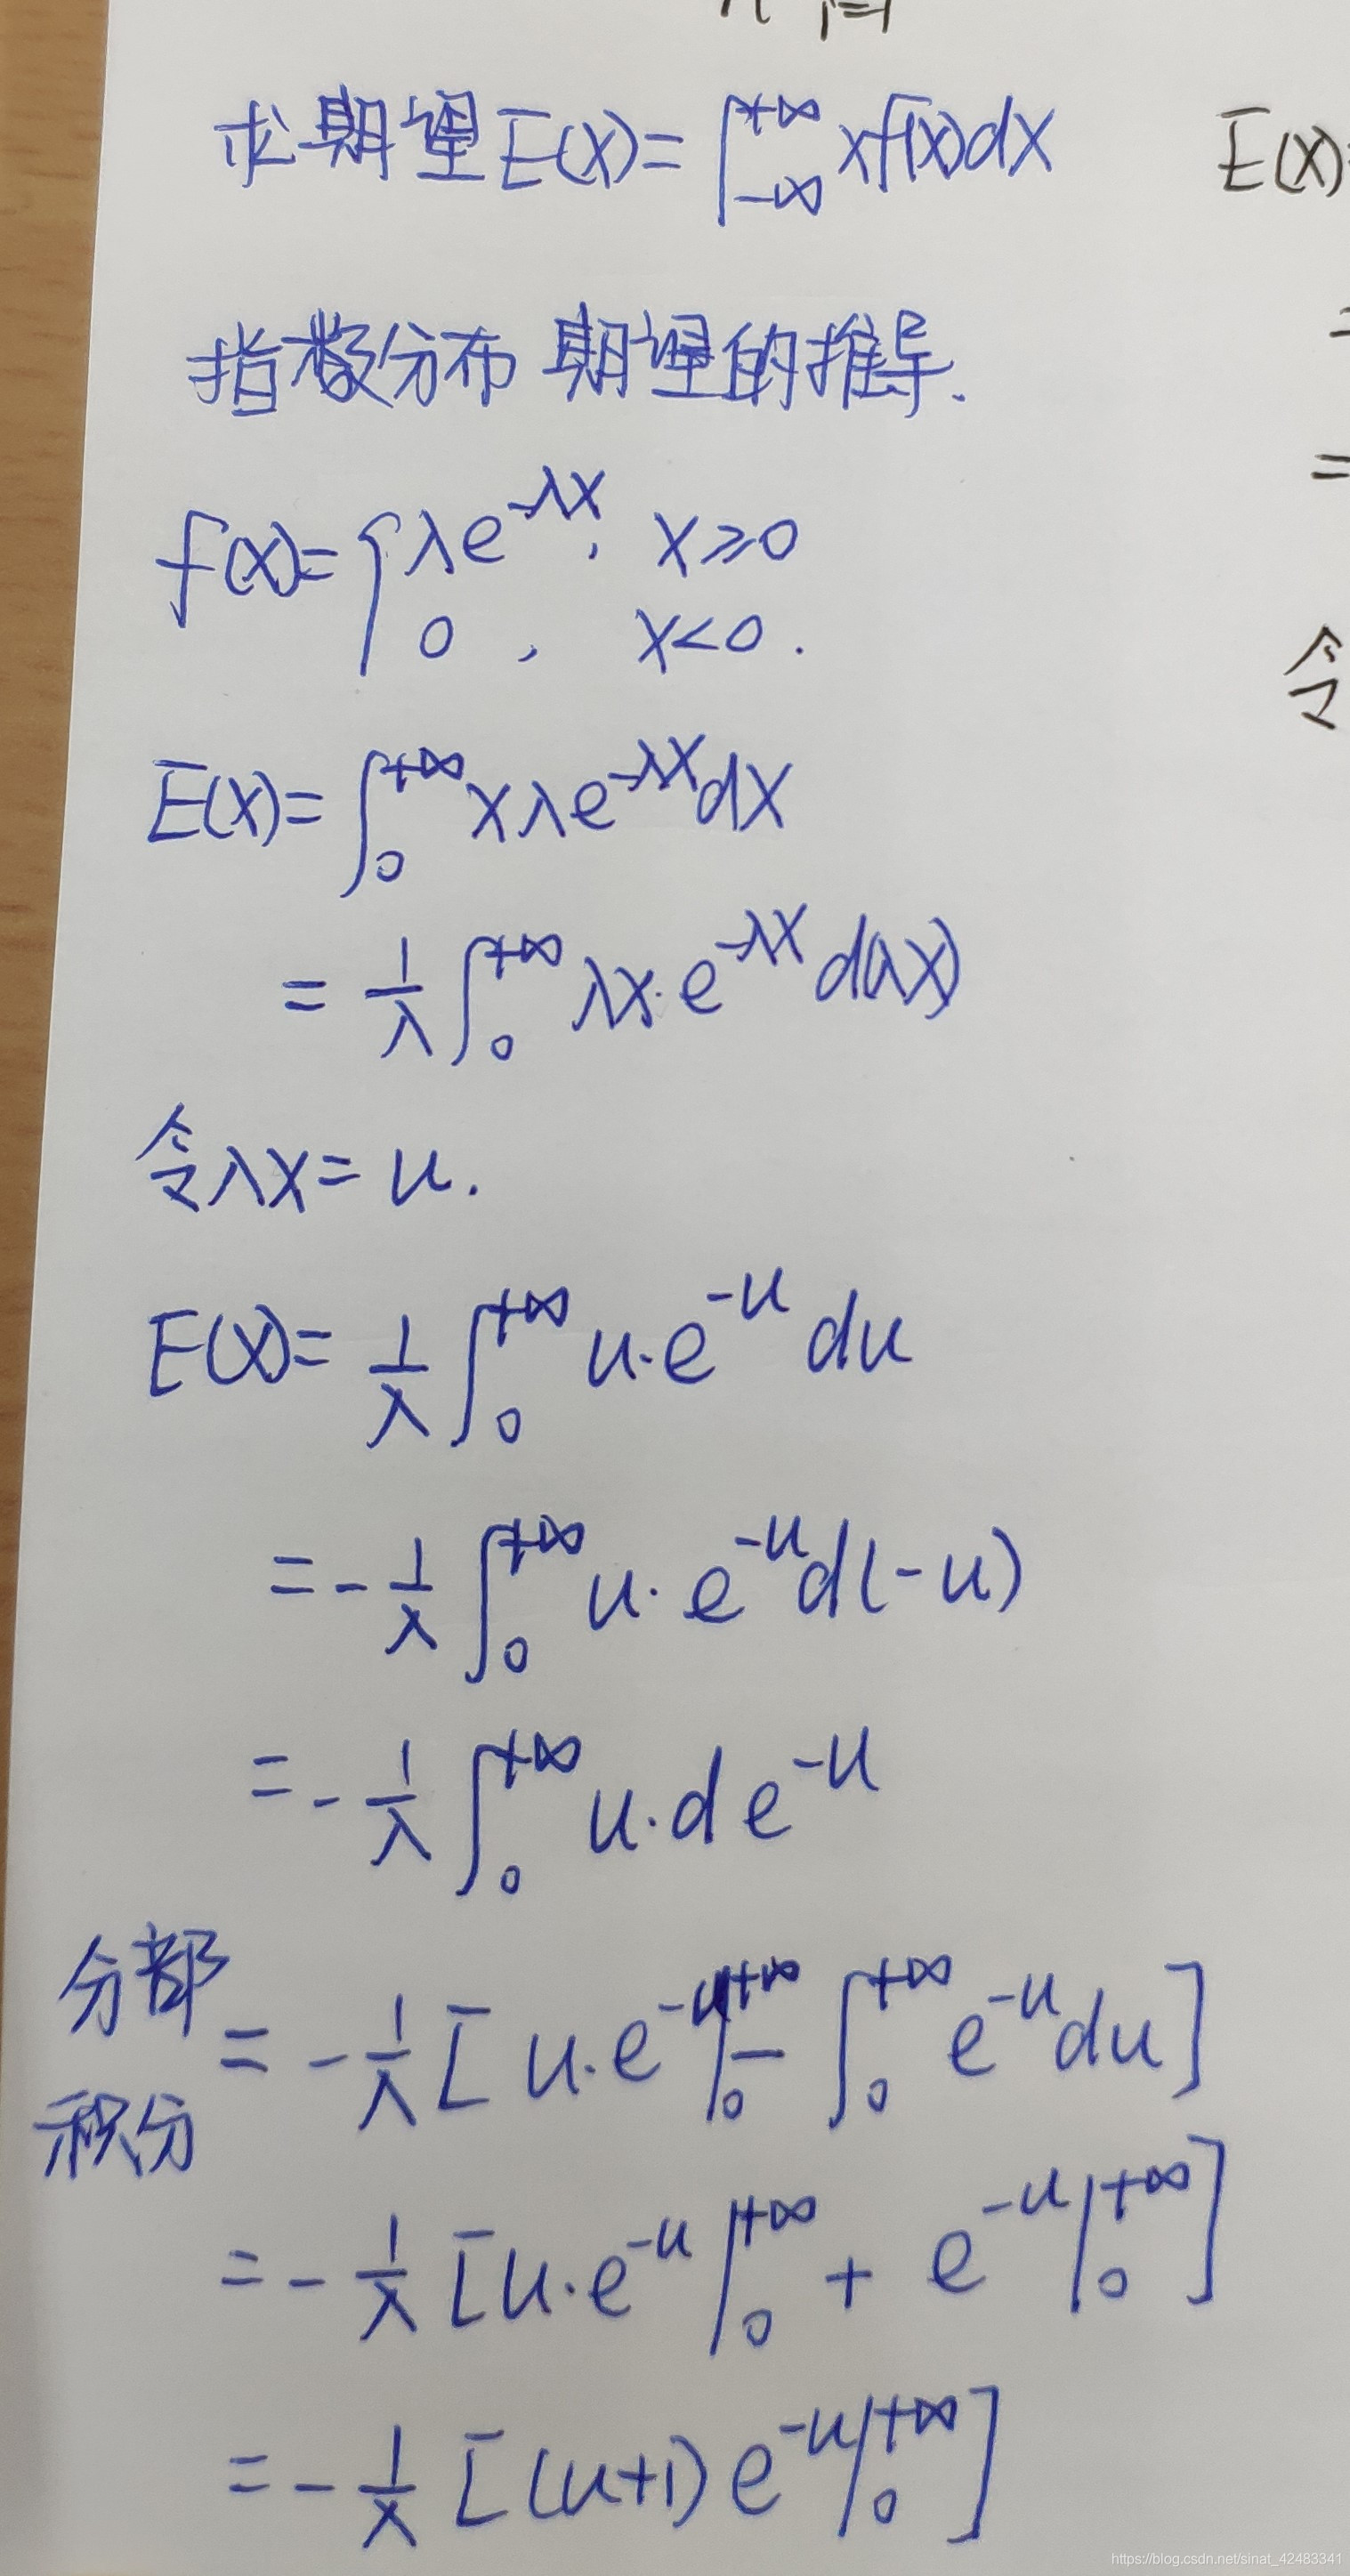 i=1
求期望E(X)=∫₋∞^+∞ xf(x)dx
E(X)=
指数分布期望的推导.
=
f(x)={λe^-λx, x≥0
0, x<0.
令
E(X)=∫₀^+∞ xλe^-λx dx
=1/λ∫₀^+∞ λx·e^-λx d(λx)
令λx=u.
E(X)=1/λ∫₀^+∞ u·e^-u du
=-1/λ∫₀^+∞ u·e^-u d(-u)
=-1/λ∫₀^+∞ u·de^-u
分部积分 =-1/λ[u·e^-u|₀^+∞ - ∫₀^+∞ e^-u du]
=-1/λ[u·e^-u|₀^+∞ + e^-u|₀^+∞]
=-1/λ[(u+1)e^-u|₀^+∞]
https://blog.csdn.net/sinat_42483341